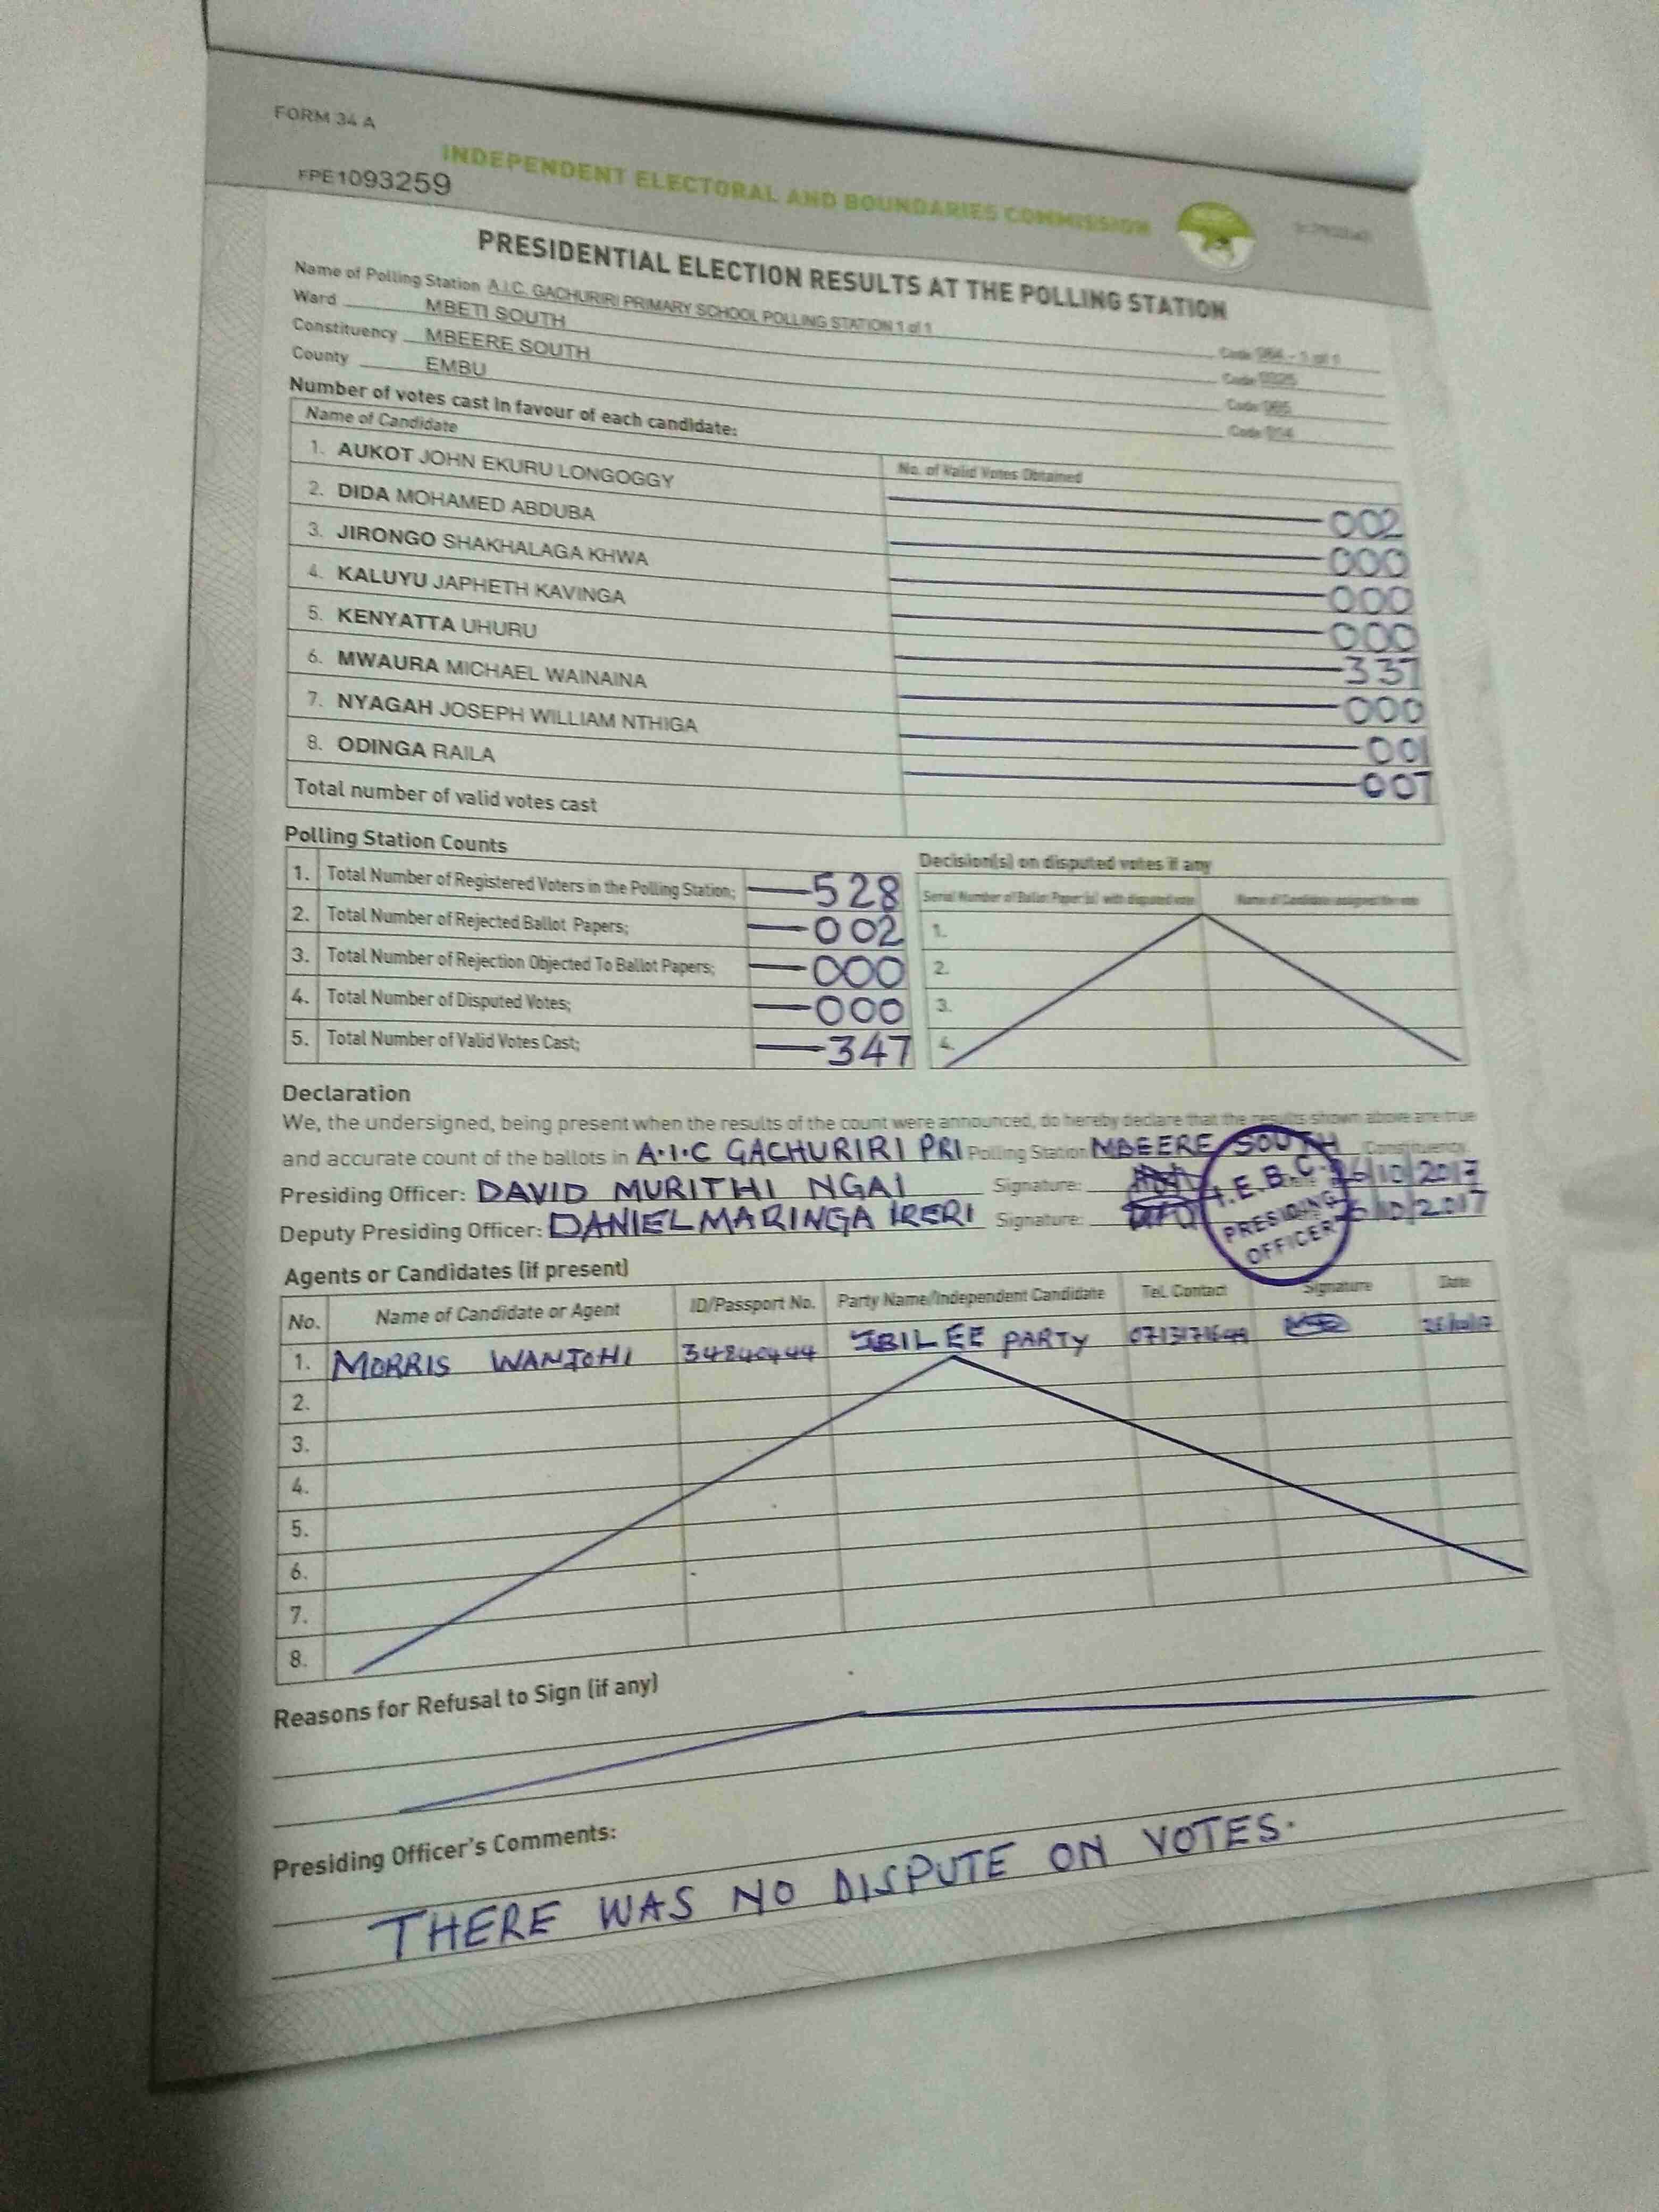 FORM 34 A
INDEPENDENT ELECTORAL AND BOUNDARIES COMMISSION
FPE1093259
PRESIDENTIAL ELECTION RESULTS AT THE POLLING STATION
Name of Polling Station A.I.C. GACHURIRI PRIMARY SCHOOL POLLING STATION 1 of 1 Code 064 - 1 of 1
Ward MBETI SOUTH Code
Constituency MBEERE SOUTH Code
County EMBU Code 014
Number of votes cast in favour of each candidate:
Name of Candidate No. of Valid Votes Obtained
1. AUKOT JOHN EKURU LONGOGGY 002
2. DIDA MOHAMED ABDUBA 000
3. JIRONGO SHAKHALAGA KHWA 000
4. KALUYU JAPHETH KAVINGA 000
5. KENYATTA UHURU 337
6. MWAURA MICHAEL WAINAINA 000
7. NYAGAH JOSEPH WILLIAM NTHIGA 001
8. ODINGA RAILA 007
Total number of valid votes cast
Polling Station Counts
1. Total Number of Registered Voters in the Polling Station; 528
2. Total Number of Rejected Ballot Papers; 002
3. Total Number of Rejection Objected To Ballot Papers; 000
4. Total Number of Disputed Votes; 000
5. Total Number of Valid Votes Cast; 347
Decision(s) on disputed votes if any
Serial Number of Ballot Paper (s) with disputed vote Name of Candidate assigned the vote
1.
2.
3.
4.
Declaration
We, the undersigned, being present when the results of the count were announced, do hereby declare that the results shown above are true
and accurate count of the ballots in A.I.C GACHURIRI PRI Polling Station MBEERE SOUTH Constituency
Presiding Officer: DAVID MURITHI NGAI Signature: 26/10/2017
Deputy Presiding Officer: DANIEL MARINGA IRERI Signature: 26/10/2017
I.E.B.C.
PRESIDING
OFFICER
Agents or Candidates (if present)
No. Name of Candidate or Agent ID/Passport No. Party Name/Independent Candidate Tel. Contact Signature Date
1. MORRIS WANJOHI 34840444 JBILEE PARTY
2.
3.
4.
5.
6.
7.
8.
Reasons for Refusal to Sign (if any)
Presiding Officer's Comments:
THERE WAS NO DISPUTE ON VOTES.